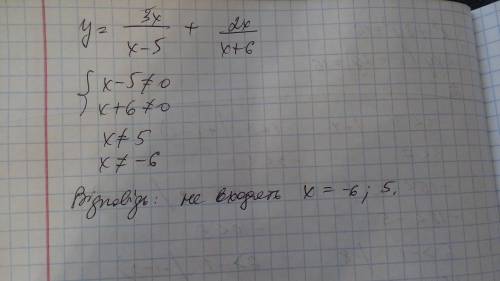 y = 3x/(x-5) + 2x/(x+6)
{ x-5≠0
x+6≠0
x≠5
x≠-6
Відповідь: не входять x = -6; 5.